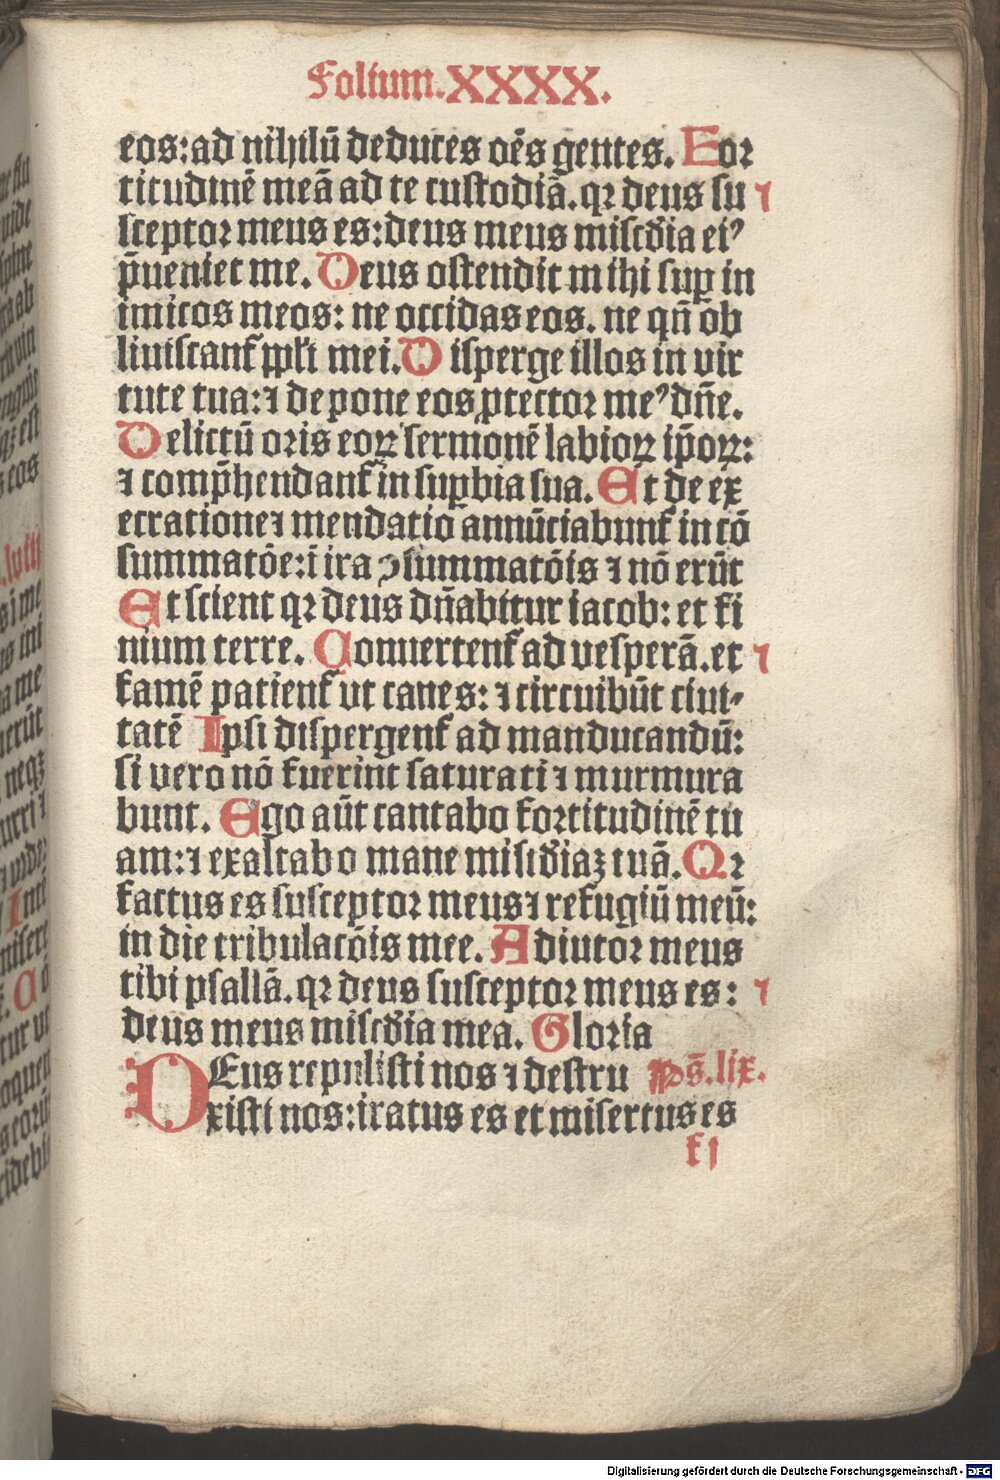 Folium.XXXX.
eos:ad nihilū deduces oēs gentes. For
titudinē meā ad te custodiā.qꝛ deus su
sceptor meus es:deus meus miscdia eiꝰ
p̄ueniet me. Deus ostendit mihi suꝑ in
imicos meos: ne occidas eos. ne qn̄ ob
liuiscant̉ ppl'i mei. Disperge illos in vir
tute tua:⁊ depone eos ꝓtector meꝰ dn̄e.
Delictū oris eoꝝ sermonē labioꝝ ip̄oꝝ:
⁊ comp̄hendant̉ in suꝑbia sua. Et de ex
ecratione⁊ mendatio annūciabunt̉ in cō
summatōe:ī ira ꝯsummatōis ⁊ nō erūt
Et scient qꝛ deus dn̄abitur iacob: et fi
nium terre. Conuertent̉ ad vesperā.et
famē patient̉ vt canes: ⁊ circuibūt ciui-
tatē Ipsi dispergent̉ ad manducandū:
si vero nō fuerint saturati ⁊ murmura
bunt. Ego aūt cantabo fortitudinē tu
am:⁊ exaltabo mane misidiaꝫ tuā. Qꝛ
factus es susceptor meus⁊ refugiū meū:
in die tribulatōis mee. Adiutor meus
tibi psallā.qꝛ deus susceptor meus es:
deus meus miscdia mea. Gloria
DEus repulisti nos ⁊ destru Ps̄.lix.
xisti nos:iratus es et misertus es
f j
Digitalisierung gefördert durch die Deutsche Forschungsgemeinschaft - DFG